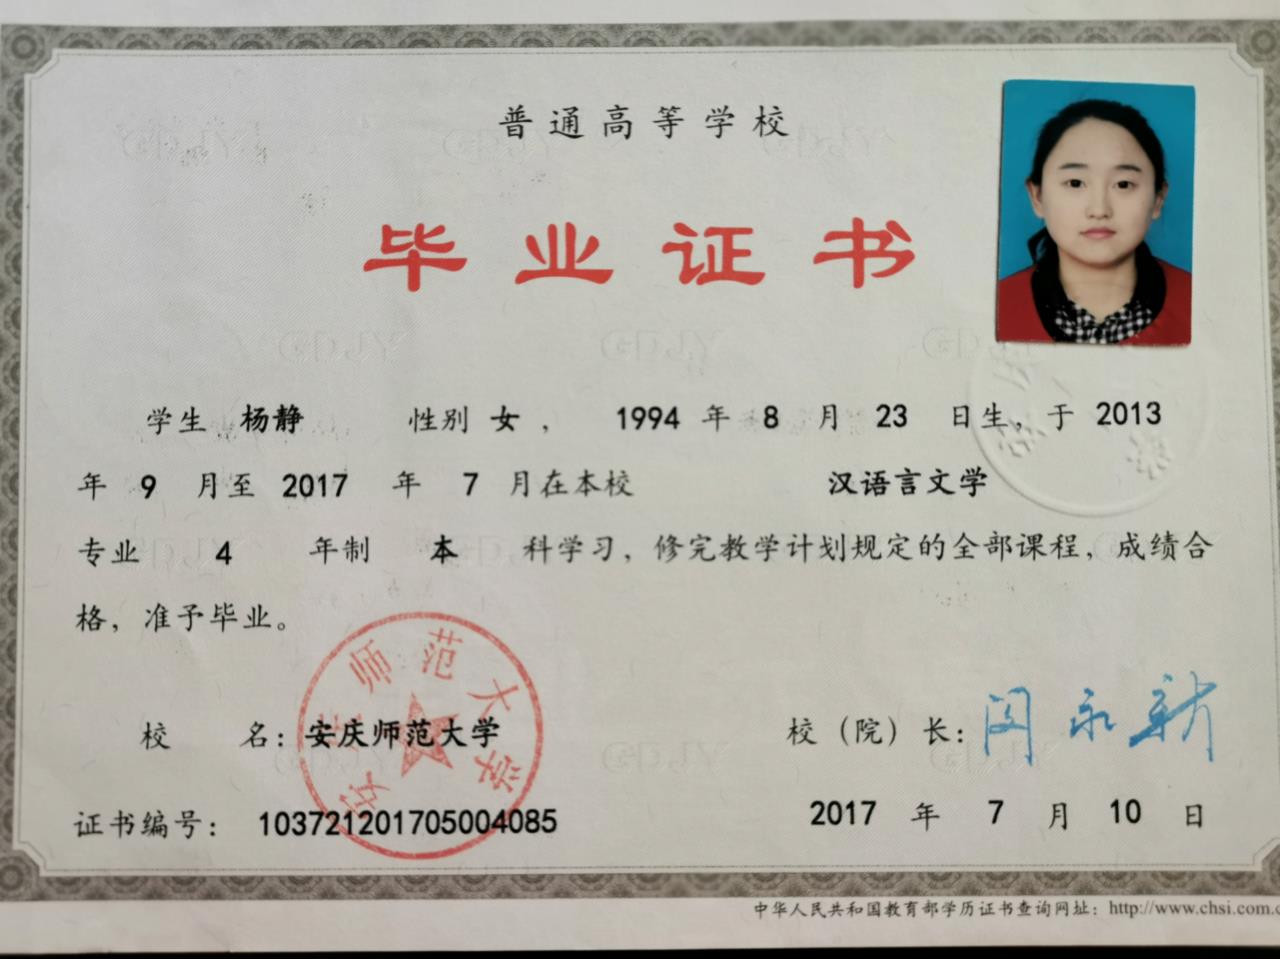 普通高等学校
毕业证书
学生 杨静 性别 女， 1994 年 8 月 23 日生，于 2013
年 9 月至 2017 年 7 月在本校 汉语言文学
专业 4 年制 本 科学习，修完教学计划规定的全部课程，成绩合
格，准予毕业。
校 名：安庆师范大学
校（院）长：闵永新
安庆师范大学
证书编号： 103721201705004085
2017 年 7 月 10 日
中华人民共和国教育部学历证书查询网址：http://www.chsi.com.c